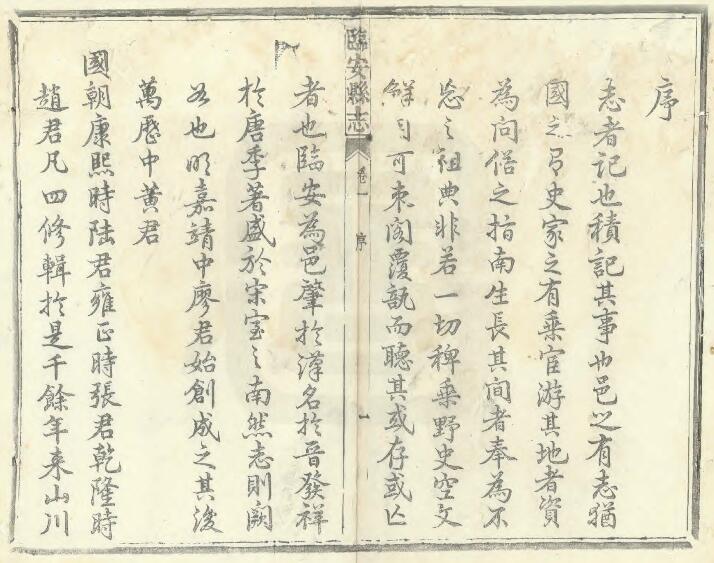 序
志者記也積記其事也邑之有志猶
國之有史家之有乘宦游其地者資
為問俗之指南生長其間者奉為不
忘之祖典非若一切稗乘野史空文
鮮用可束閣覆瓿而聽其或存或亡
臨安縣志
卷一
序
一
者也臨安為邑肇於漢名於晉發祥
於唐季著盛於宋室之南然志則闕
如也明嘉靖中廖君始創成之其後
萬歷中黃君
國朝康熙時陸君雍正時張君乾隆時
趙君凡四修輯於是千餘年来山川